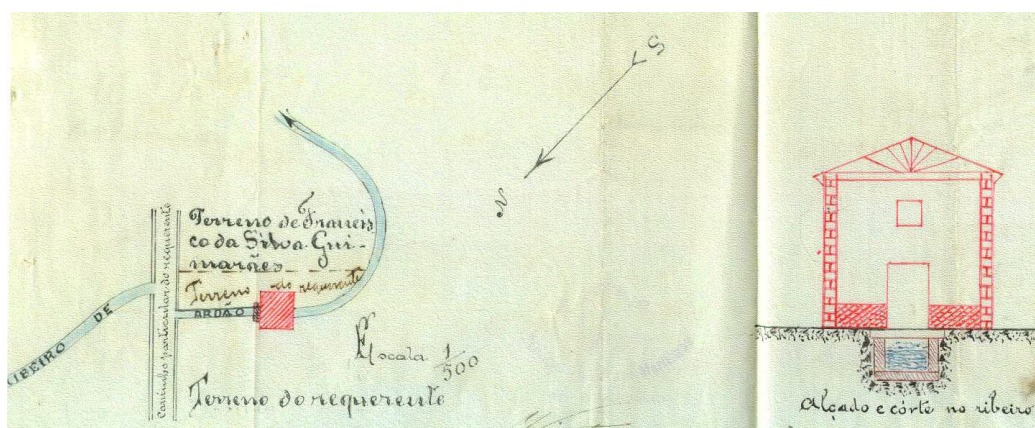 S
N
Terreno de Francis
co da Silva Gui-
marães
Terreno do requerente
RIBEIRO DE
ARDÃO
Caminho particular do requerente
Escala 1/500
Terreno do requerente
Alçado e córte no ribeiro